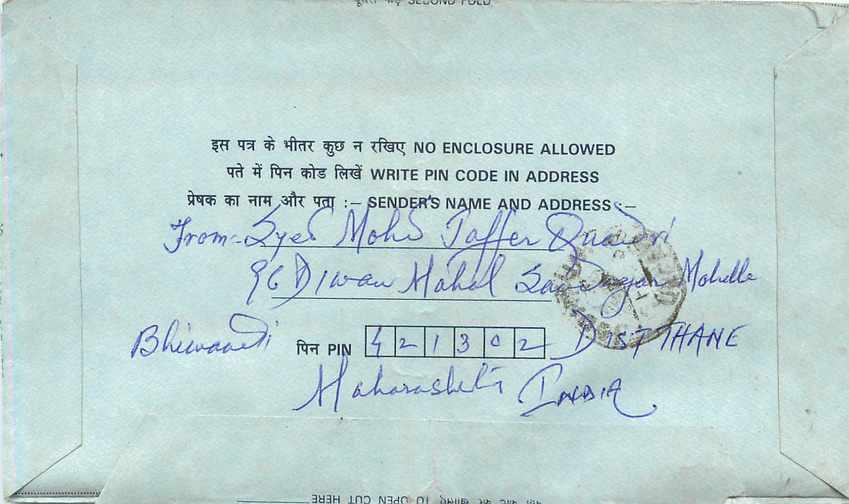 SECOND FOLD
इस पत्र के भीतर कुछ न रखिए NO ENCLOSURE ALLOWED
पते में पिन कोड लिखें WRITE PIN CODE IN ADDRESS
प्रेषक का नाम और पता :– SENDER'S NAME AND ADDRESS :–
From:- Syed Mohd Jaffer Quadri
96 Diwan Mahal Mohalla
Bhiwandi पिन PIN 421302 DIST THANE
Maharashtra INDIA
TO OPEN CUT HERE